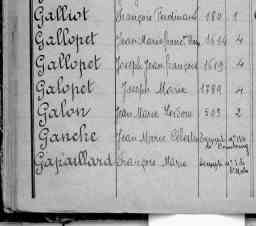 Galliot François Ferdinand 180 1
Gallopet Jean Marie 1614 4
Gallopet Joseph Jean François 1619 4
Galopet Joseph Marie 1789 4
Galon Jean Marie 503 2
Ganche Jean Marie Célestin
Gapaillard François Marie